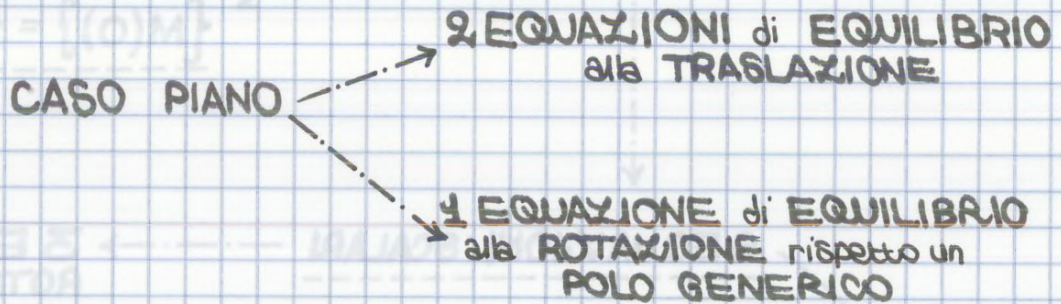 2 EQUAZIONI di EQUILIBRIO
alla TRASLAZIONE
CASO PIANO
1 EQUAZIONE di EQUILIBRIO
alla ROTAZIONE rispetto un
POLO GENERICO